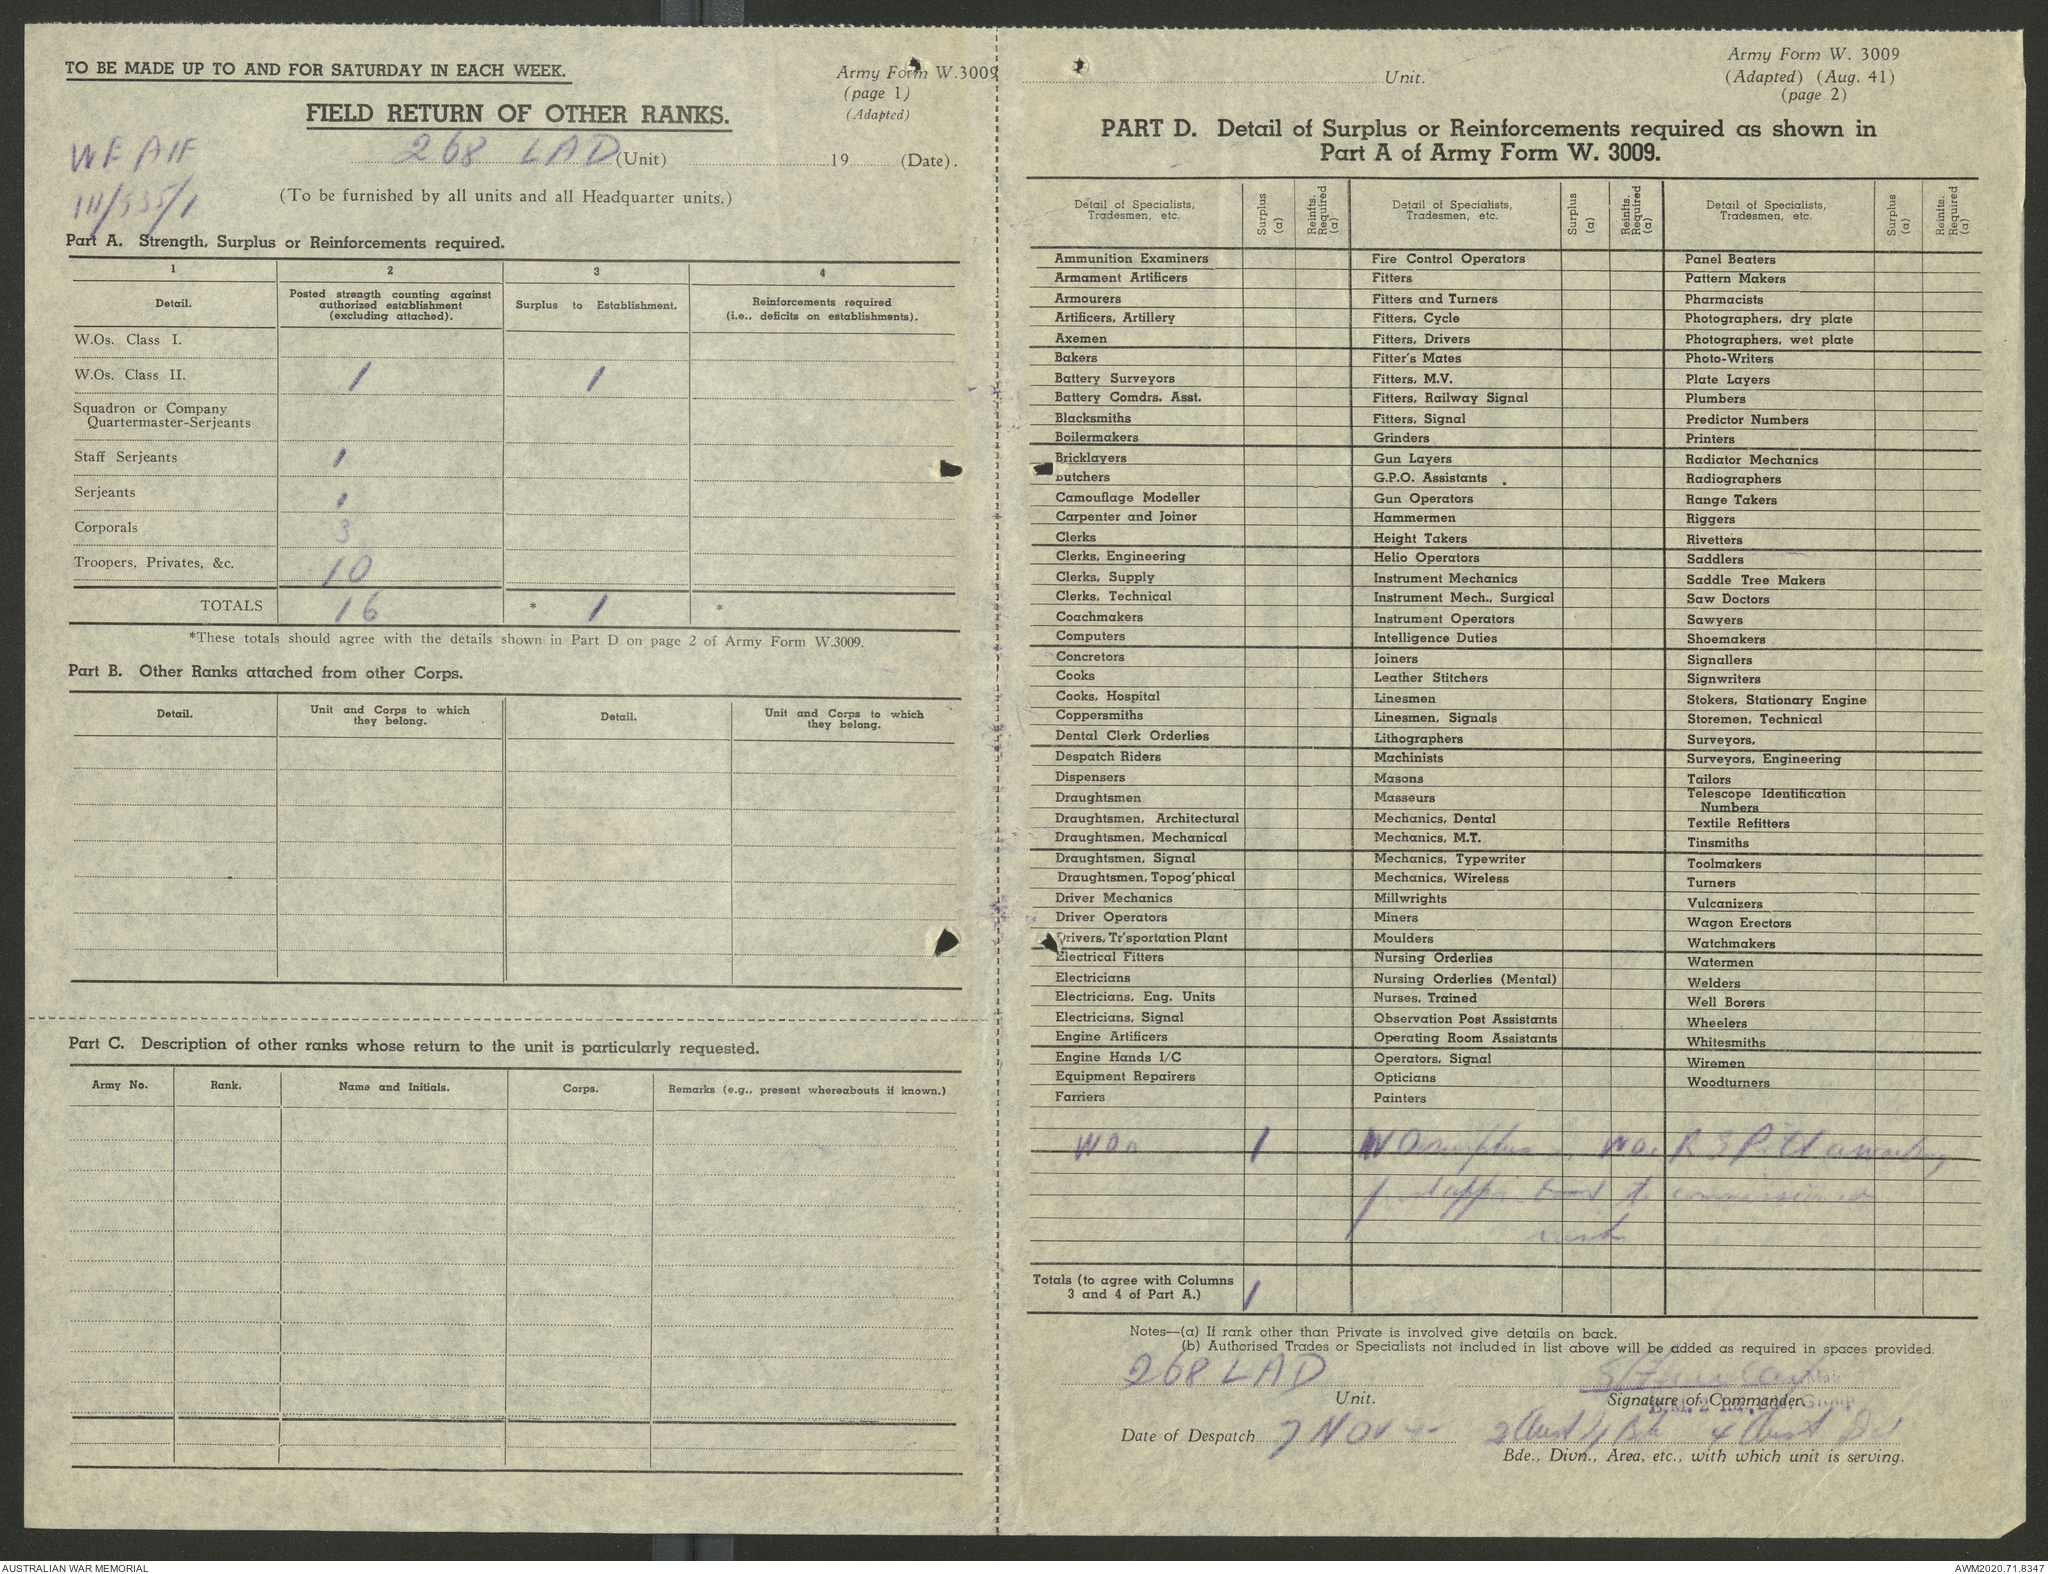 TO BE MADE UP TO AND FOR SATURDAY IN EACH WEEK.
Army Form W.3009
(page 1)
(Adapted)
FIELD RETURN OF OTHER RANKS.
WE AIF
111/535/1
268 LAD (Unit) 19 (Date).
(To be furnished by all units and all Headquarter units.)
Part A. Strength, Surplus or Reinforcements required.
1 2 3 4
Detail. Posted strength counting against authorized establishment (excluding attached). Surplus to Establishment. Reinforcements required (i.e., deficits on establishments).
W.Os. Class I.
W.Os. Class II. 1 1
Squadron or Company
Quartermaster-Serjeants
Staff Serjeants 1
Serjeants 1
Corporals 3
Troopers, Privates, &c. 10
TOTALS 16 * 1 *
*These totals should agree with the details shown in Part D on page 2 of Army Form W.3009.
Part B. Other Ranks attached from other Corps.
Detail. Unit and Corps to which they belong. Detail. Unit and Corps to which they belong.
Part C. Description of other ranks whose return to the unit is particularly requested.
Army No. Rank. Name and Initials. Corps. Remarks (e.g., present whereabouts if known.)
Unit.
Army Form W. 3009
(Adapted) (Aug. 41)
(page 2)
PART D. Detail of Surplus or Reinforcements required as shown in
Part A of Army Form W. 3009.
Detail of Specialists, Tradesmen, etc. Surplus (a) Reinfts. Required (a) Detail of Specialists, Tradesmen, etc. Surplus (a) Reinfts. Required (a) Detail of Specialists, Tradesmen, etc. Surplus (a) Reinfts. Required (a)
Ammunition Examiners Fire Control Operators Panel Beaters
Armament Artificers Fitters Pattern Makers
Armourers Fitters and Turners Pharmacists
Artificers, Artillery Fitters, Cycle Photographers, dry plate
Axemen Fitters, Drivers Photographers, wet plate
Bakers Fitter's Mates Photo-Writers
Battery Surveyors Fitters, M.V. Plate Layers
Battery Comdrs. Asst. Fitters, Railway Signal Plumbers
Blacksmiths Fitters, Signal Predictor Numbers
Boilermakers Grinders Printers
Bricklayers Gun Layers Radiator Mechanics
Butchers G.P.O. Assistants Radiographers
Camouflage Modeller Gun Operators Range Takers
Carpenter and Joiner Hammermen Riggers
Clerks Height Takers Rivetters
Clerks, Engineering Helio Operators Saddlers
Clerks, Supply Instrument Mechanics Saddle Tree Makers
Clerks, Technical Instrument Mech., Surgical Saw Doctors
Coachmakers Instrument Operators Sawyers
Computers Intelligence Duties Shoemakers
Concretors Joiners Signallers
Cooks Leather Stitchers Signwriters
Cooks, Hospital Linesmen Stokers, Stationary Engine
Coppersmiths Linesmen, Signals Storemen, Technical
Dental Clerk Orderlies Lithographers Surveyors,
Despatch Riders Machinists Surveyors, Engineering
Dispensers Masons Tailors
Draughtsmen Masseurs Telescope Identification Numbers
Draughtsmen, Architectural Mechanics, Dental Textile Refitters
Draughtsmen, Mechanical Mechanics, M.T. Tinsmiths
Draughtsmen, Signal Mechanics, Typewriter Toolmakers
Draughtsmen, Topog'phical Mechanics, Wireless Turners
Driver Mechanics Millwrights Vulcanizers
Driver Operators Miners Wagon Erectors
Drivers, Tr'sportation Plant Moulders Watchmakers
Electrical Fitters Nursing Orderlies Watermen
Electricians Nursing Orderlies (Mental) Welders
Electricians, Eng. Units Nurses, Trained Well Borers
Electricians, Signal Observation Post Assistants Wheelers
Engine Artificers Operating Room Assistants Whitesmiths
Engine Hands I/C Operators, Signal Wiremen
Equipment Repairers Opticians Woodturners
Farriers Painters
1 WO surplus
to commissioned
rank
Totals (to agree with Columns
3 and 4 of Part A.) 1
Notes—(a) If rank other than Private is involved give details on back.
(b) Authorised Trades or Specialists not included in list above will be added as required in spaces provided.
268 LAD
Unit. Signature of Commander.
Date of Despatch 7 Nov
Bde., Divn., Area, etc., with which unit is serving.
AUSTRALIAN WAR MEMORIAL AWM2020.71.8347